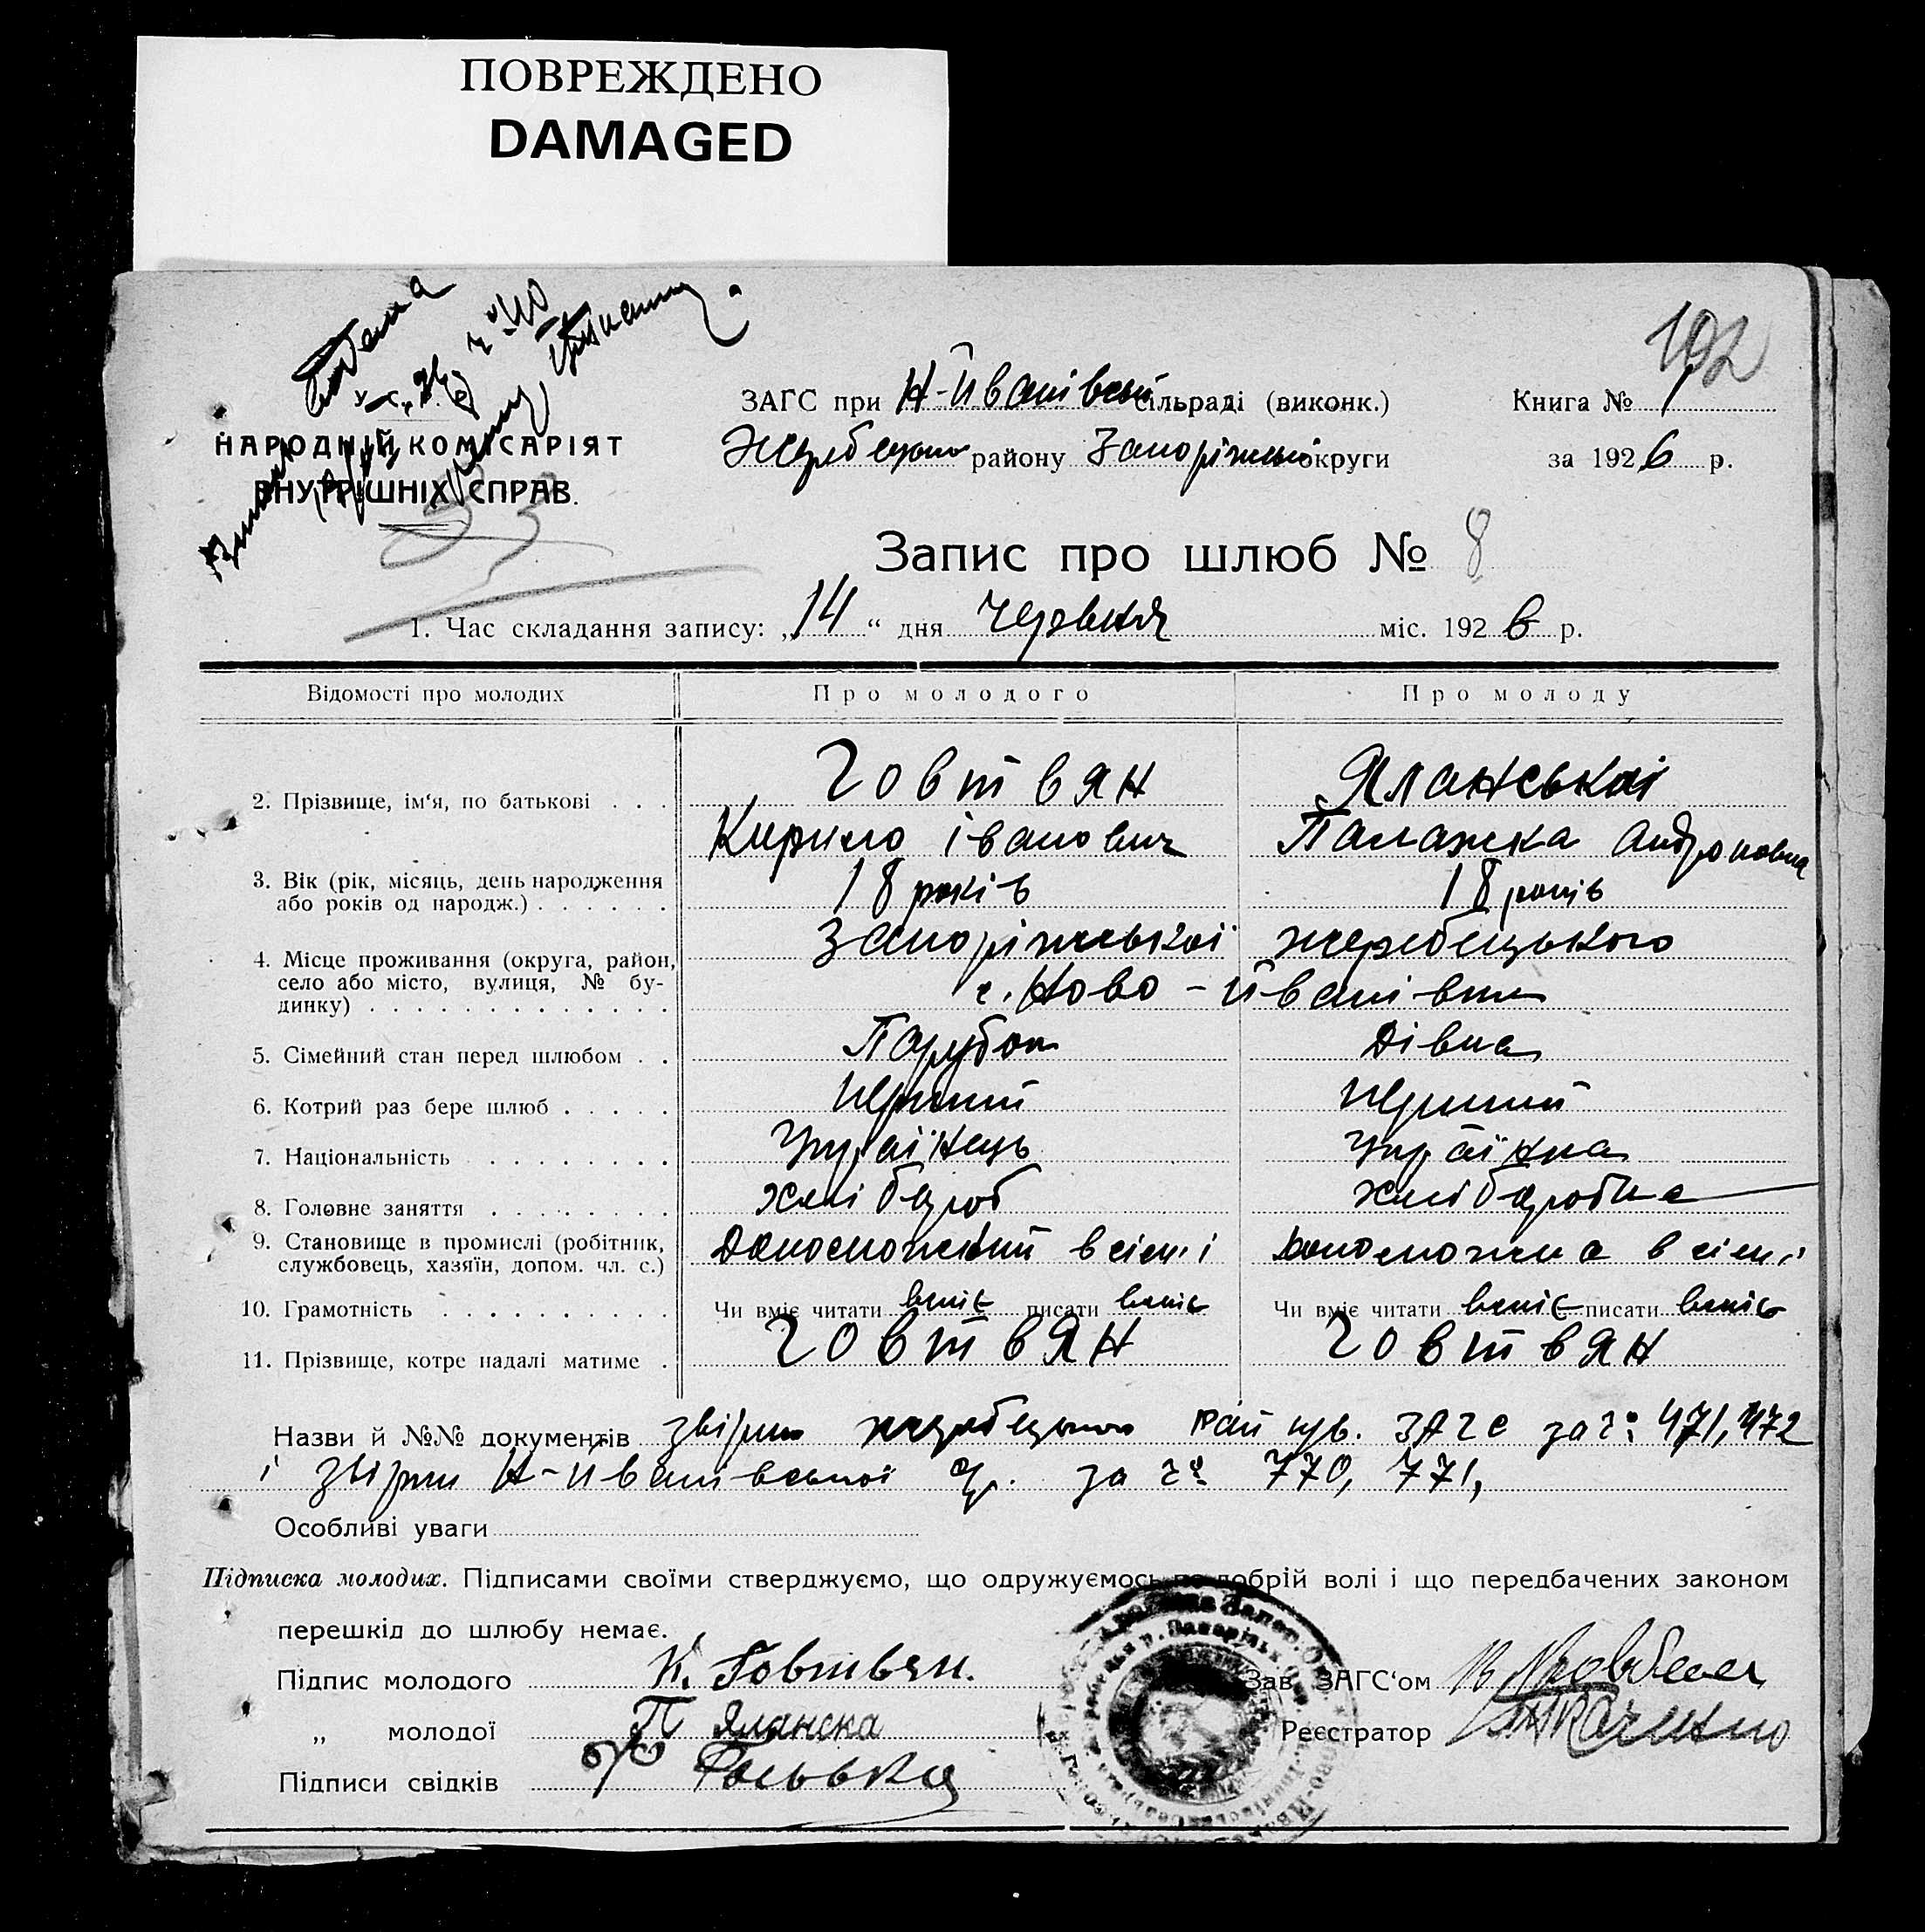 ПОВРЕЖДЕНО
DAMAGED
192
ЗАГС при Н-Йванівській сільраді (виконк.) Книга № 1
НАРОДНІЙ КОМІСАРІЯТ
ВНУТРІШНІХ СПРАВ.
Жеребецького району Запоріжської округи за 1926 р.
Запис про шлюб № 8
1. Час складання запису: „14“ дня червня міс. 1926 р.
Відомості про молодих Про молодого Про молоду
2. Прізвище, ім'я, по батькові . . . Говтвян Яланської
Кирило Іванович Палажка Андроновна
3. Вік (рік, місяць, день народження
або років од народж.) . . . . . . 18 років 18 років
4. Місце проживання (округа, район, Запоріжської жеребецького
село або місто, вулиця, № бу-
динку) . . . . . . . . . . . . . с. Ново-Йванівки
5. Сімейний стан перед шлюбом . . Парубок Дівка
6. Котрий раз бере шлюб . . . . . Перший Перший
7. Національність . . . . . . . . Українець Українка
8. Головне заняття . . . . . . . . хлібороб хліборобка
9. Становище в промислі (робітник,
службовець, хазяїн, допом. чл. с.) Допоможний в сім'ї допоможна в сім'ї
10. Грамотність . . . . . . . . . . Чи вміє читати вміє писати вміє Чи вміє читати вміє писати вміє
11. Прізвище, котре надалі матиме . Говтвян Говтвян
Назви й №№ документів звірки жеребецького рай ЗАГС за 471, 472
і звірки Н-Йванівської за 770, 771,
Особливі уваги
Підписка молодих. Підписами своїми стверджуємо, що одружуємось по добрій волі і що передбачених законом
перешкід до шлюбу немає.
Підпис молодого К. Говтвян. Зав. ЗАГС'ом
„ молодої П Яланска Реєстратор
Підписи свідків